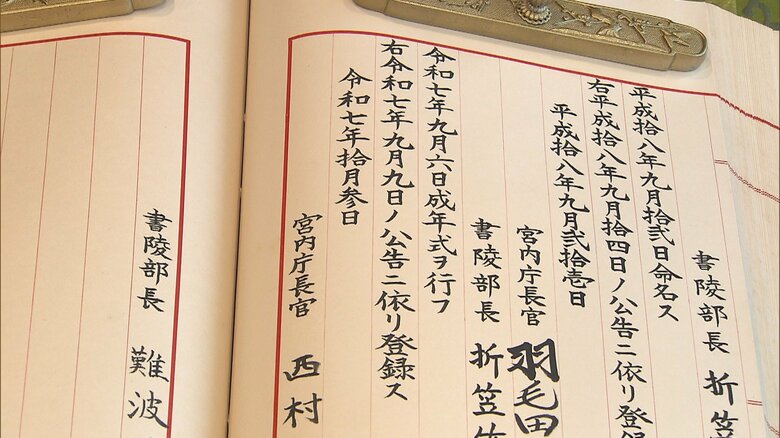 書陵部長 折
平成拾八年九月拾弐日命名ス
右平成拾八年九月拾四日ノ公告ニ依リ登録
平成拾八年九月弐拾壱日
宮内庁長官 羽毛田
書陵部長 折笠
令和七年九月六日成年式ヲ行フ
右令和七年九月九日ノ公告ニ依リ登録ス
令和七年拾月参日
宮内庁長官 西村
書陵部長 難波